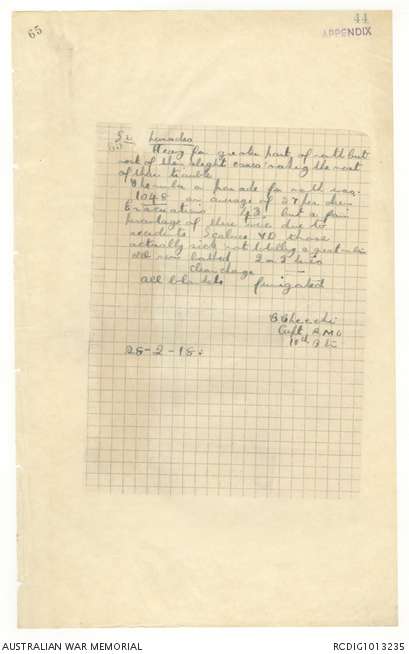 65
44
APPENDIX
Parades
Heavy for greater part of month but
most of them slight cases making the most
of their trouble
Number on parade for month was
1048 an average of 37 per diem
Evacuations 43. but a fair
percentage of these were due to
accidents Scabies VD those
actually sick not totalling a great number
men bathed 2 or 3 times
Clean change
all blankets fumigated
Capt. AMC
10th Btn
28-2-18.
AUSTRALIAN WAR MEMORIAL
RCDIG1013235